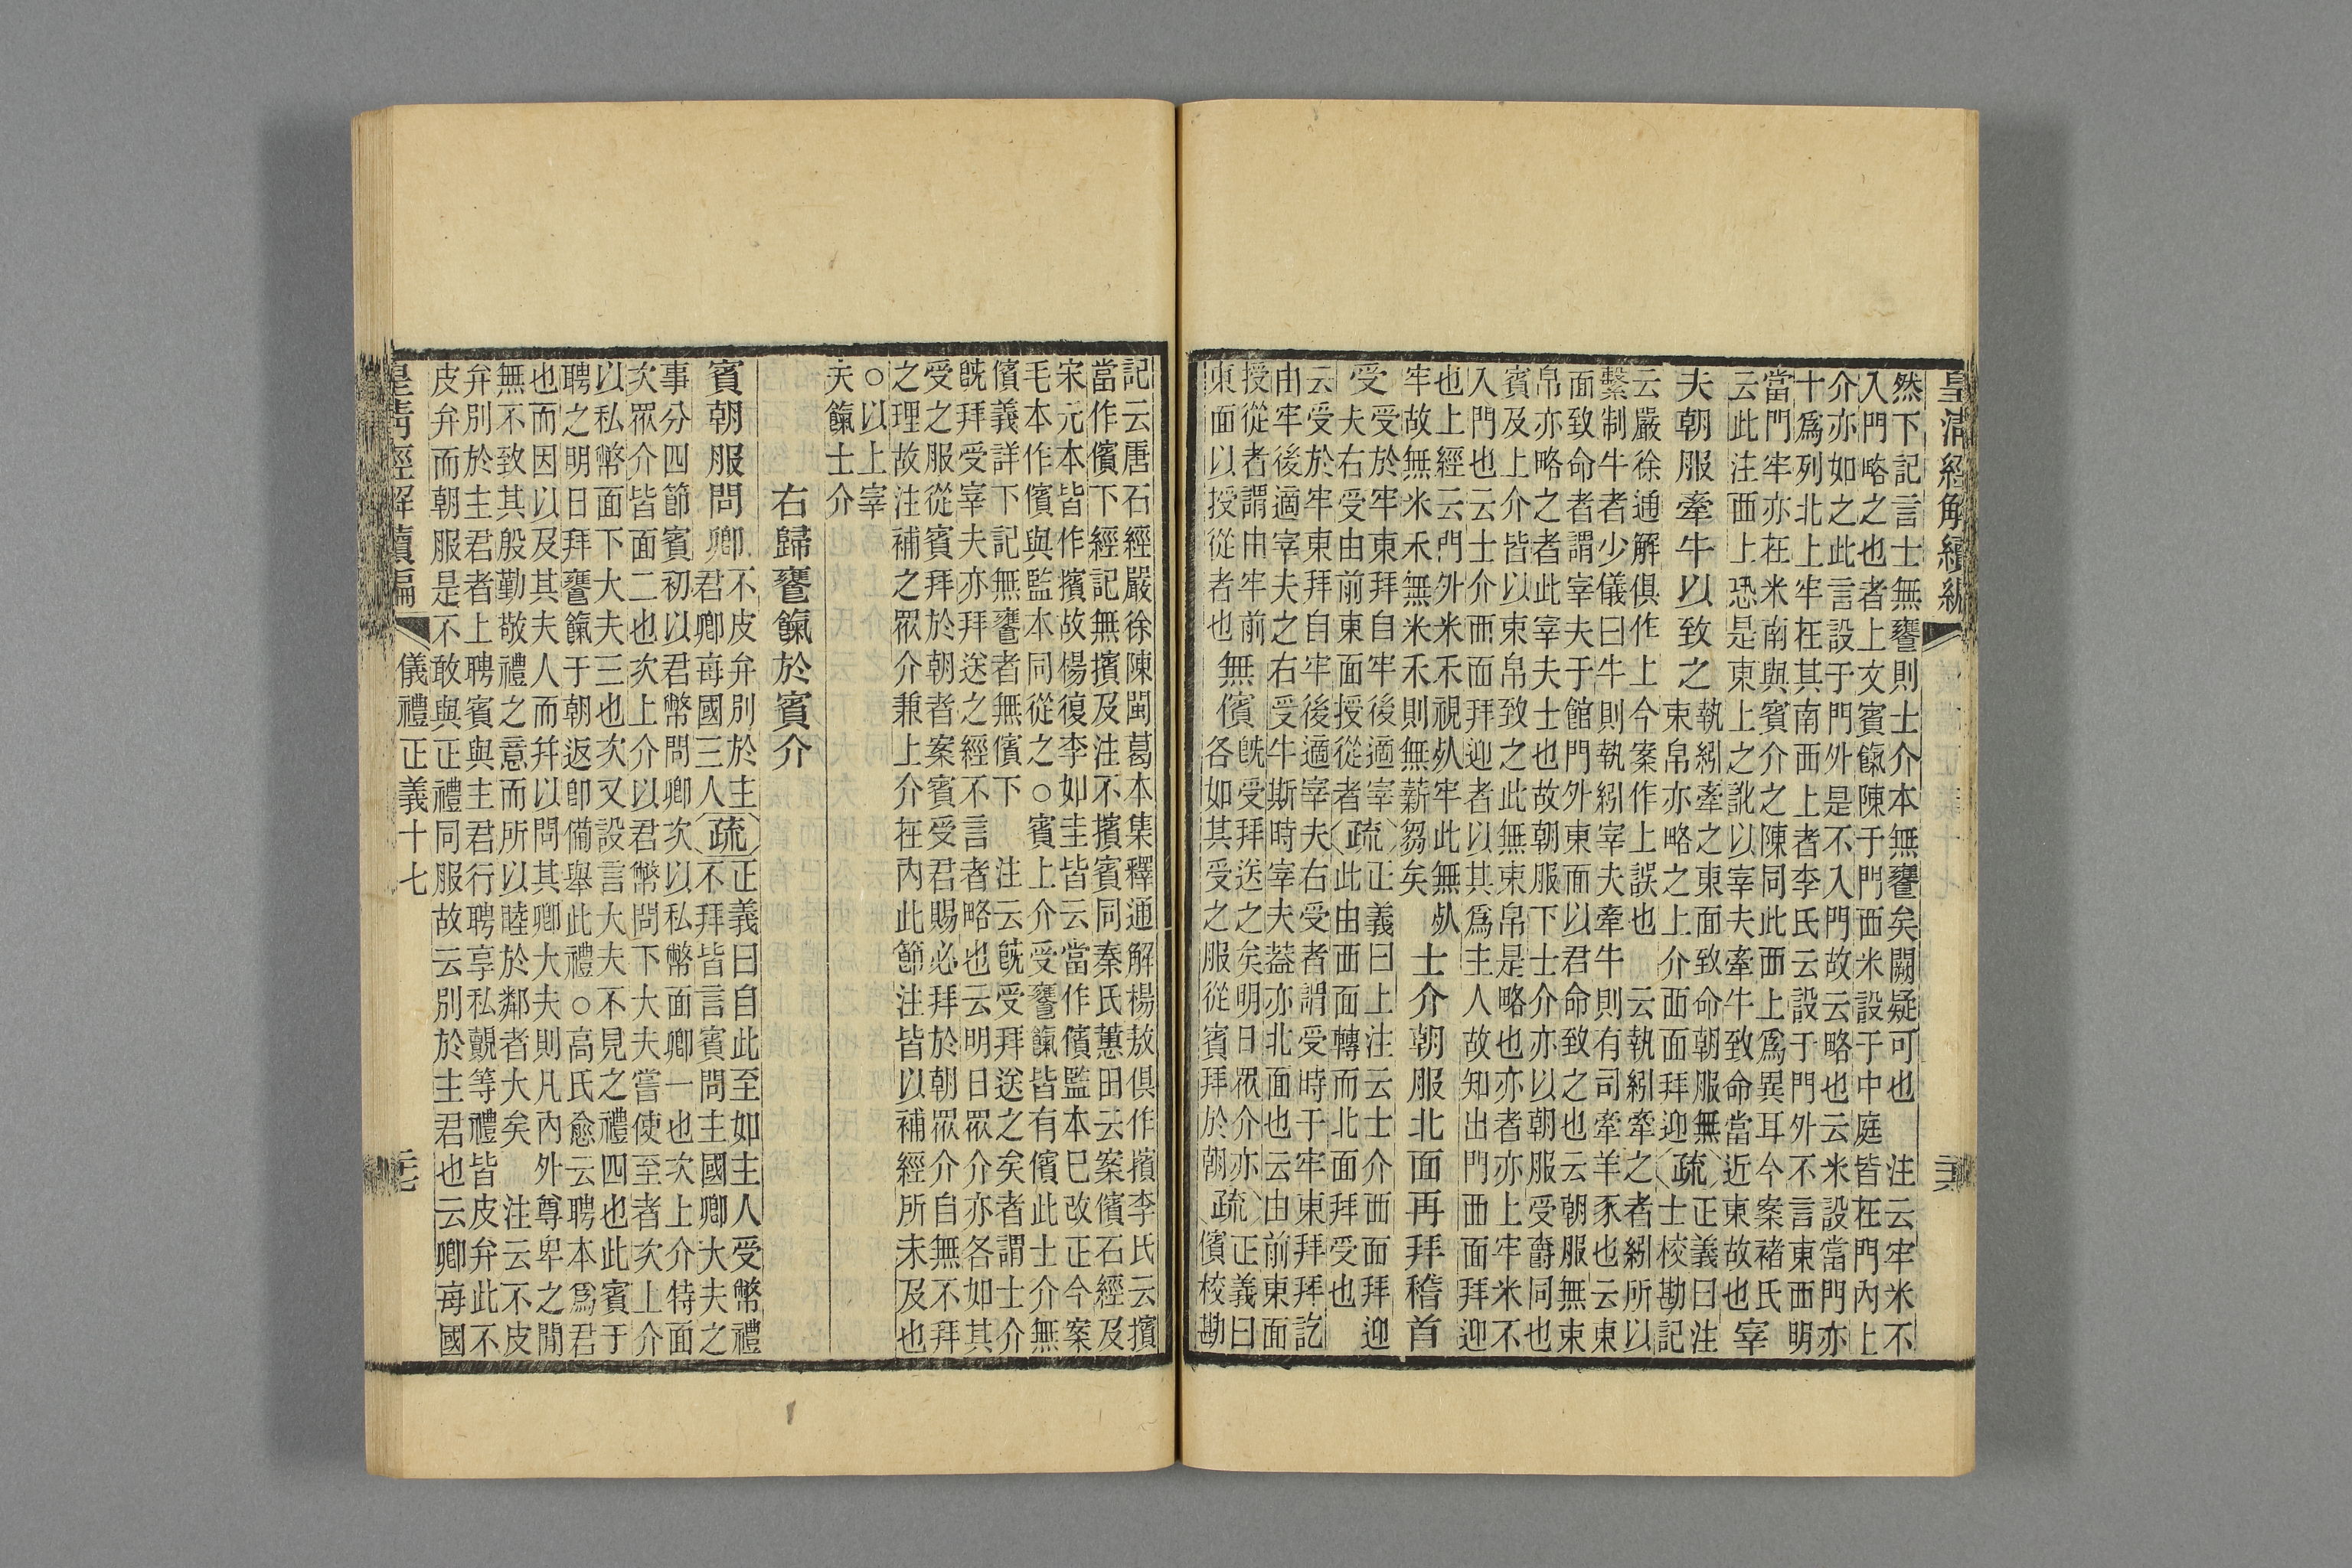 皇清經解續編
然下記言士無饔則士介本無饔矣闕疑可也　注云牢米不
入門略之也者上文賓餼陳于門西米設于中庭皆在門內上
介亦如之此言設于門外是不入門故云略也云米設當門亦
十爲列北上牢在其南西上者李氏云設于門外不言東西明
當門牢亦在米南與賓介之陳同此西上爲異耳今案褚氏
云此注西上恐是東上之訛以宰夫牽牛致命當近東故也宰
夫朝服牽牛以致之
執紖牽之東面致命朝服無
束帛亦略之上介西面拜迎
疏
正義曰注
士校勘記
云嚴徐通解俱作上今案作上誤也　云執紖牽之者紖所以
繫制牛者少儀曰牛則執紖宰夫牽牛則有司牽羊豕也云東
面致命者謂宰夫于館門外東面以君命致之也云朝服無束
帛亦略之者此宰夫士也故朝服下士介亦以朝服受爵同也
賓及上介皆以束帛致之此無束帛是略也亦者亦上牢米不
入門也云士介西面拜迎者以其爲主人故知出門西面拜迎
也上經云門外米禾視死牢此無死
牢故無米禾無米禾則無薪芻矣
士介朝服北面再拜稽首
受
受於牢東拜自牢後適宰
夫右受由前東面授從者
疏
正義曰上注云士介西面拜迎
此由西面轉而北面拜受也
云受於牢東拜自牢後適宰夫右受者謂受時于牢東拜拜訖
由牢後適宰夫之右受牛斯時宰夫蓋亦北面也云由前東面
授從者謂由牢前
東面以授從者也
無儐
既受拜送之矣明日眾介亦
各如其受之服從賓拜於朝
疏
正義曰
儐校勘
記云唐石經嚴徐陳閩葛本集釋通解楊敖俱作擯李氏云擯
當作儐下經記無擯及注不擯賓同秦氏蕙田云案儐石經及
宋元本皆作擯故楊復李如圭皆云當作儐監本已改正今案
毛本作儐與監本同從之○賓上介受饔餼皆有儐此士介無
儐義詳下記無饔者無儐下　注云既受拜送之矣者謂士介
既拜受宰夫亦拜送之經不言者略也云明日眾介亦各如其
受之服從賓拜於朝者案賓受君賜必拜於朝眾介自無不拜
之理故注補之眾介兼上介在內此節注皆以補經所未及也
○以上宰
夫餼士介
右歸饔餼於賓介
賓朝服問卿
不皮弁別於主
君卿每國三人
疏
正義曰自此至如主人受幣禮
不拜皆言賓問主國卿大夫之
事分四節賓初以君幣問卿次以私幣面卿一也次上介特面
次眾介皆面二也次上介以君幣問下大夫嘗使至者次上介
以私幣面下大夫三也次又設言大夫不見之禮四也此賓于
聘之明日拜饔餼于朝返卽備舉此禮○高氏愈云聘本爲君
也而因以及其夫人而幷以問其卿大夫則凡內外尊卑之閒
無不致其殷勤敬禮之意而所以睦於鄰者大矣　注云不皮
弁別於主君者上聘賓與主君行聘享私覿等禮皆皮弁此不
皮弁而朝服是不敢與正禮同服故云別於主君也云卿每國
皇清經解續編　儀禮正義十七